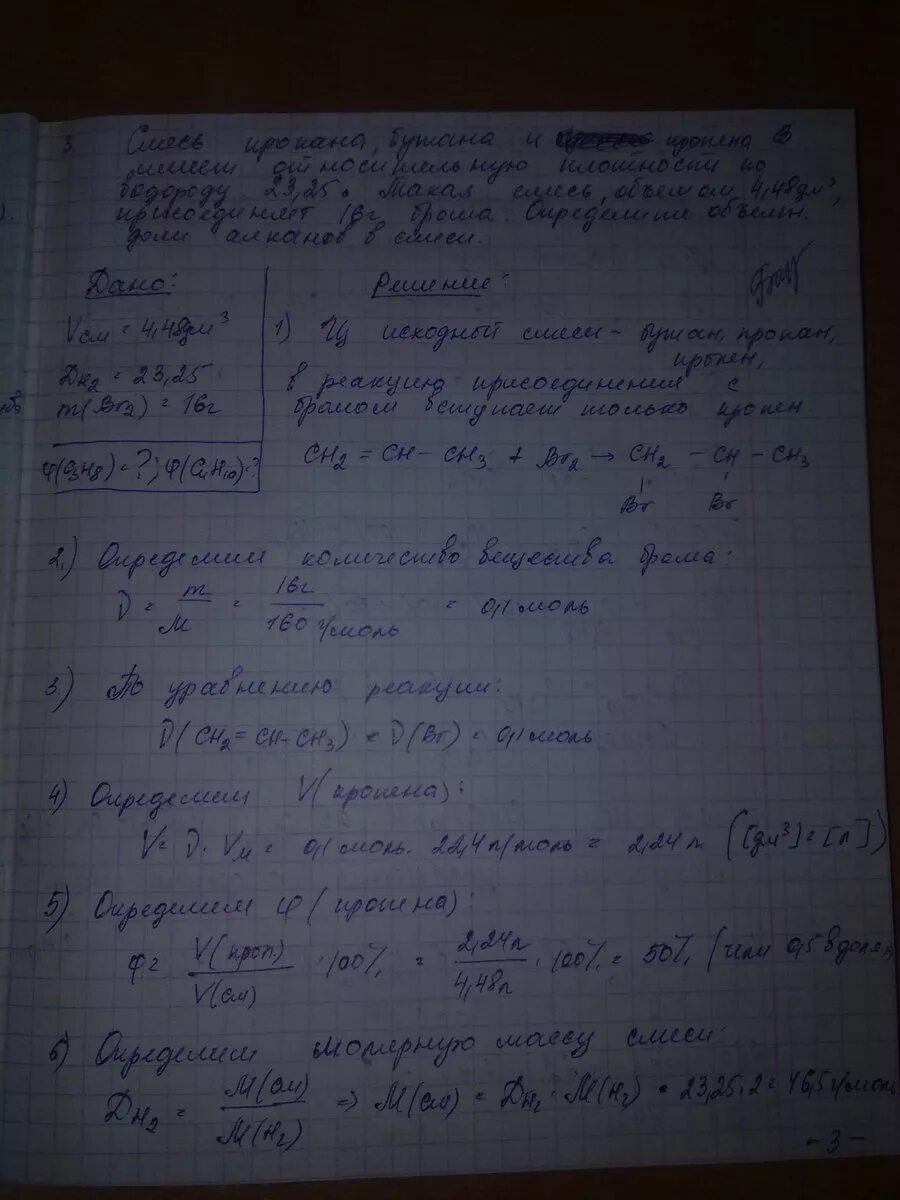 3. Смесь пропана, бутана и пропена
имеет относительную плотность по
водороду 23,25. Такая смесь, объемом 4,48дм³,
присоединяет 16г брома. Определите объемн.
доли алканов в смеси.
Дано:
Vсм = 4,48дм³
Dн2 = 23,25
m(Br2) = 16г
φ(C3H8) = ?; φ(C4H10) = ?
Решение:
1) Из исходной смеси – бутан, пропан,
пропен,
в реакцию присоединения с
бромом вступает только пропен.
CH2 = CH – CH3 + Br2 → CH2 – CH – CH3
Br Br
2.) Определим количество вещества брома:
ν = m/M = 16г/160 г/моль = 0,1 моль
3.) По уравнению реакции:
ν(CH2 = CH-CH3) = ν(Br) = 0,1 моль
4) Определяем V(пропена):
V = ν · Vм = 0,1 моль · 22,4 л/моль = 2,24 л ([дм³] = [л])
5) Определим φ (пропена):
φ = V(проп.)/V(см) · 100% = 2,24л/4,48л · 100% = 50% (или 0,5 в долях
6) Определим молярную массу смеси:
Dн2 = M(см)/M(H2) ⇒ M(см) = Dн2 · M(H2) = 23,25 · 2 = 46,5 г/моль
- 3 -